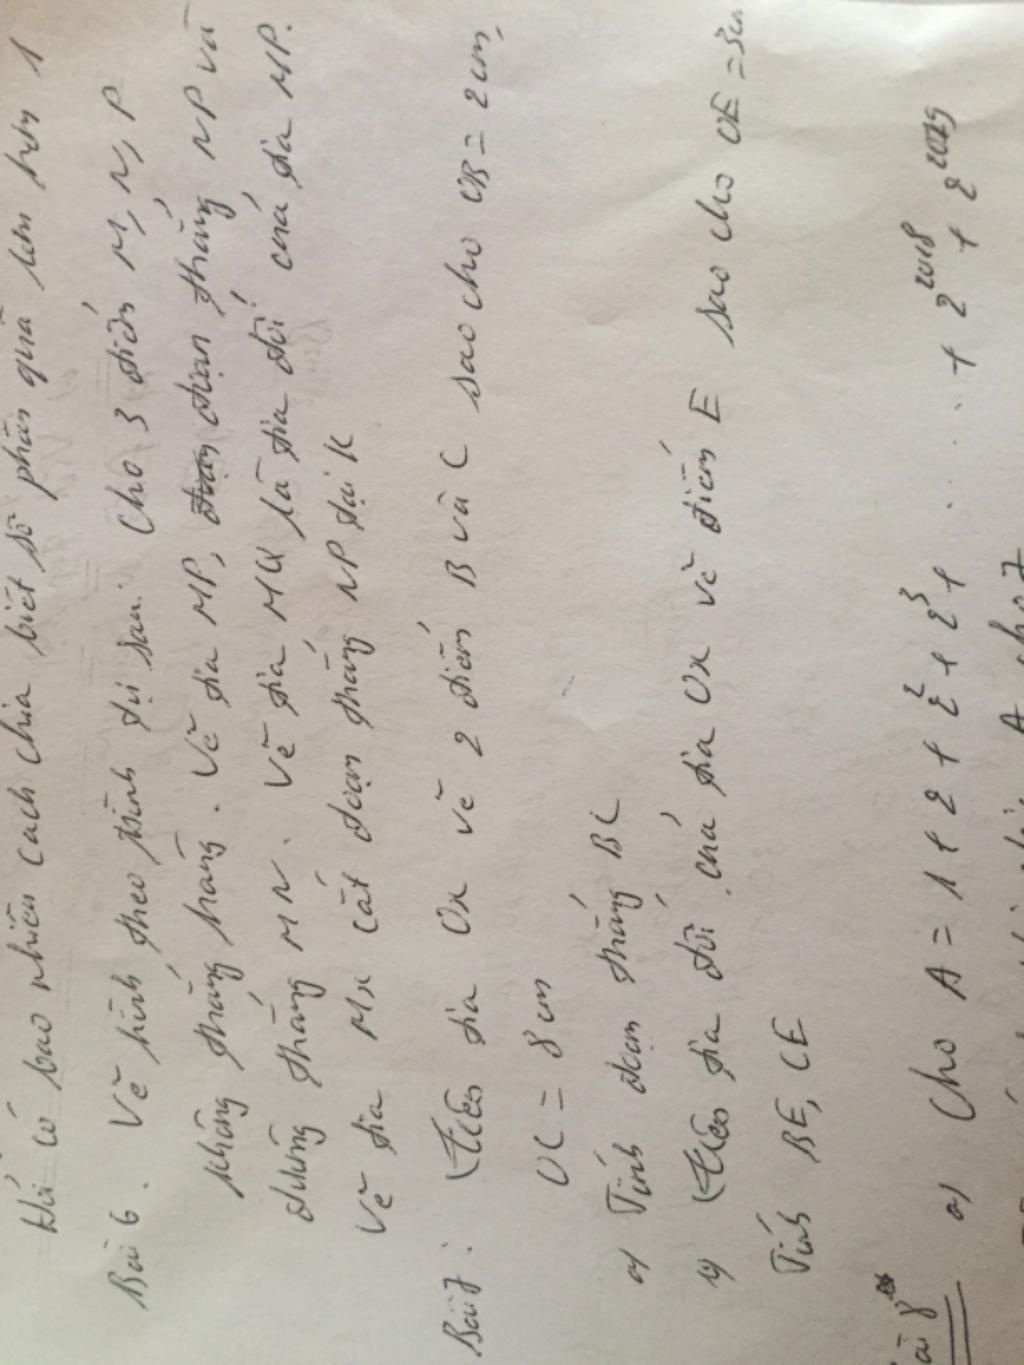 có bao nhiêu cách chia biết số phần quà lớn hơn 1
Bài 6. Vẽ hình theo trình tự sau: Cho 3 điểm M, N, P
không thẳng hàng. Vẽ tia MP, đoạn thẳng NP và
đường thẳng MN. Vẽ tia MQ là tia đối của tia MP.
Vẽ tia Mx cắt đoạn thẳng NP tại K
Bài 7: Trên tia Ox vẽ 2 điểm B và C sao cho OB = 2cm,
OC = 8cm
a) Tính đoạn thẳng BC
b) Trên tia đối của tia Ox vẽ điểm E sao cho OE = 3cm
Tính BE, CE
Bài 8
a) Cho A = 1 + 2 + 2² + 2³ + ..... + 2²⁰¹⁸ + 2²⁰¹⁹